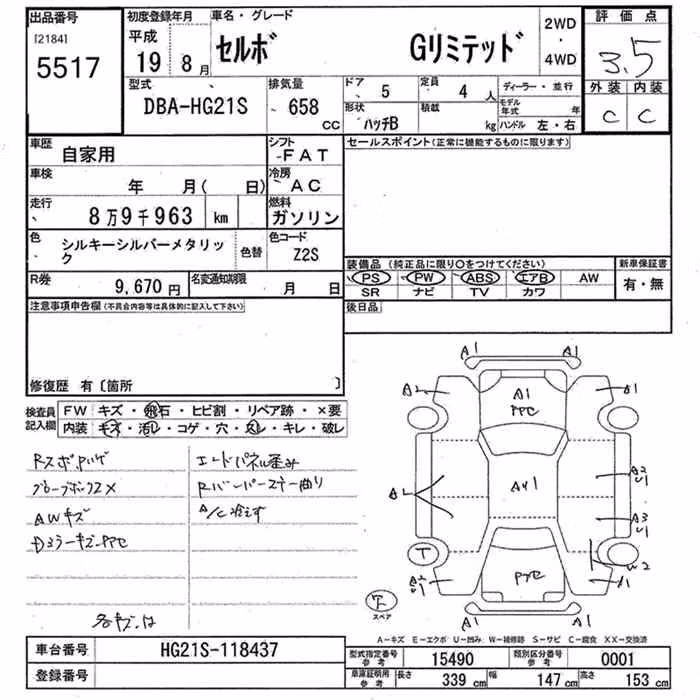 出品番号
[2184]
5517
初度登録年月
平成
19 8月
車名・グレード
セルボ Gリミテッド
2WD
・
4WD
評価点
3.5
外装 内装
C C
型式
DBA-HG21S
排気量
658
cc
ドア 5
定員 4 人
形状 ハッチB
積載 kg
ディーラー・並行
モデル年式 年
ハンドル 左・右
車歴 自家用
シフト
FAT
車検 年 月( 日)
冷房
AC
走行 8万9千963 km
燃料
ガソリン
色 シルキーシルバーメタリック
色替
色コード
Z2S
R券 9,670円
名変通知期限 月 日
セールスポイント(正常に機能するものに限ります)
装備品 (純正品に限り○をつけてください)
PS PW ABS エアB AW
SR ナビ TV カワ
新車保証書
有・無
後日品
注意事項申告欄(不具合内容等は具体的に記入して下さい)
修復歴 有〔箇所 〕
検査員記入欄
FW キズ・飛石・ヒビ割・リペア跡・×要
内装 キズ・汚レ・コゲ・穴・スレ・キレ・破レ
グローブボックスX
AWキズ
A/C冷えず
A1 A1
A2 A1 A1
A2
U1
AU1
A3
U1
W2
A1
スペア
A-キズ E-エクボ U-凹み W-補修跡 S-サビ C-腐食 XX-交換済
車台番号 HG21S-118437
登録番号
型式指定番号
参考
15490
類別区分番号
参考
0001
車庫証明用
参考
長さ 339 cm
幅 147 cm
高さ 153 cm